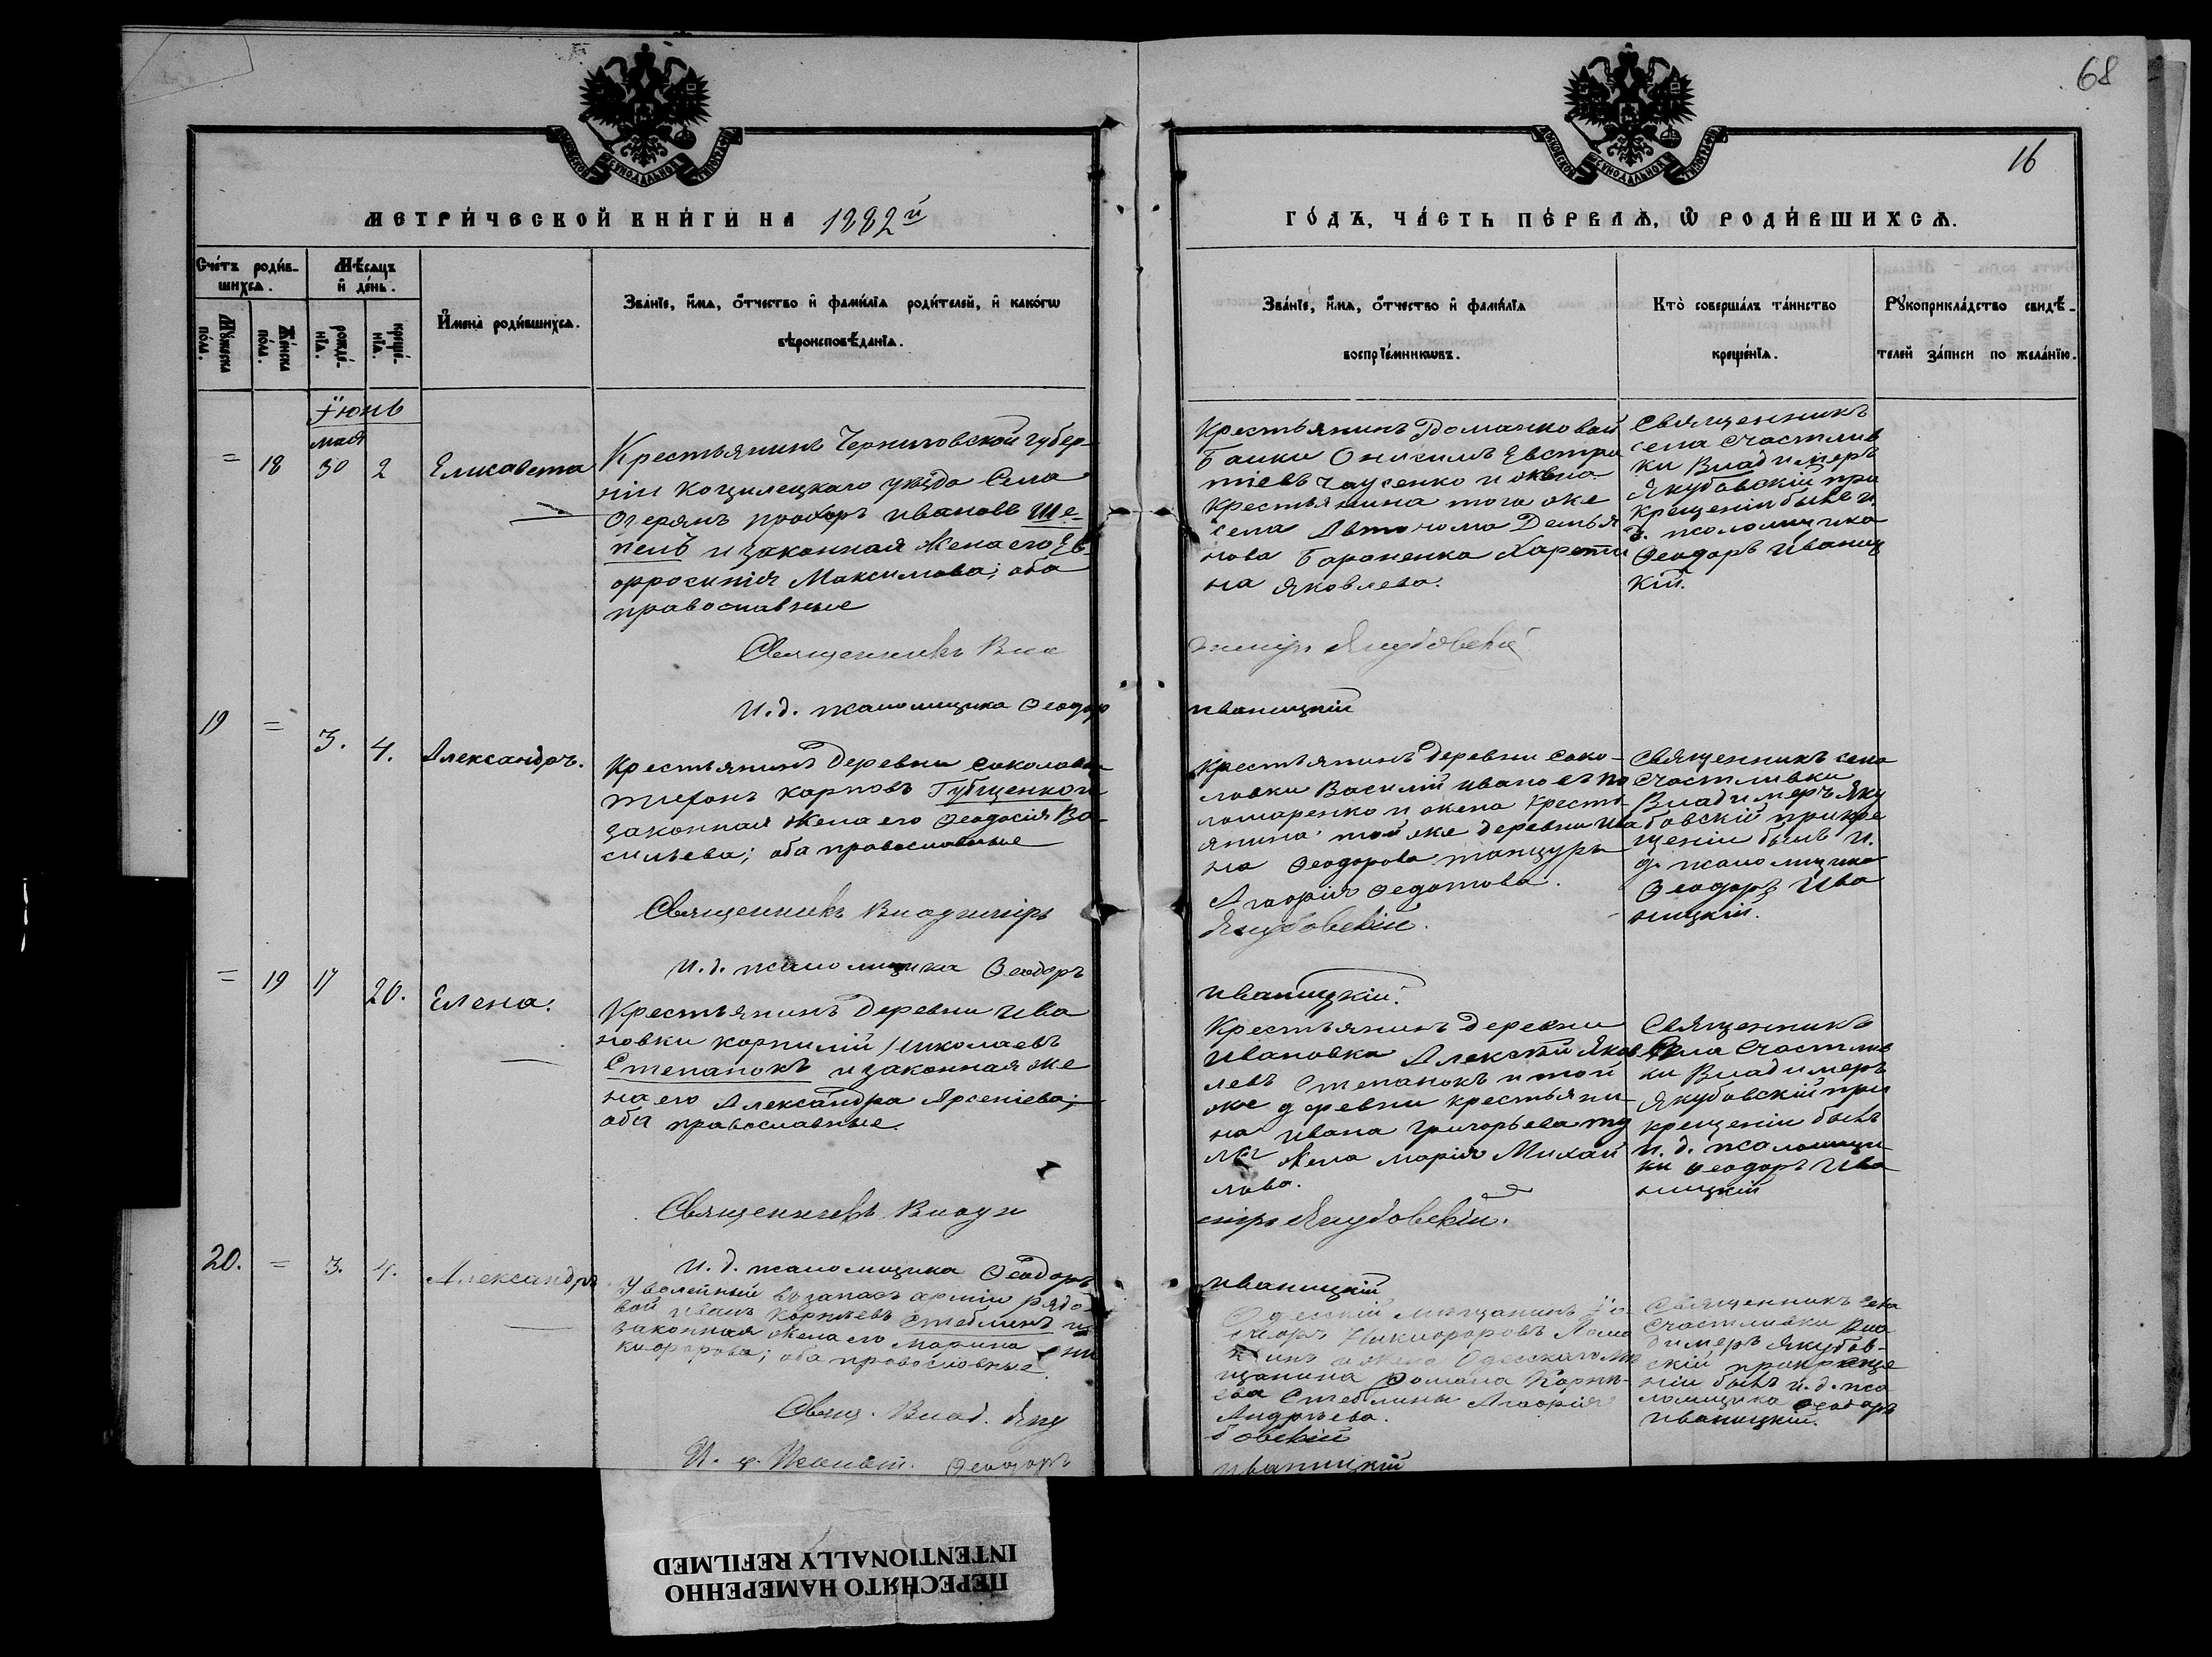 68
16
МЕТРИ́ЧЕСКОЙ КНИ́ГИ НА 1882й
ГО́ДЪ, ЧА́СТЬ ПЕ́РВАѦ, Ѡ РОДИ́ВШИХСѦ.
Сче́тъ роди́в-
шихсѧ.
Мѣ́сѧцъ
и де́нь.
Мꙋжеска
по́ла.
Же́нска
по́ла.
рожде́-
нїѧ.
креще́-
нїѧ.
Имена̀ роди́вшихсѧ.
Зва́нїе, и́мѧ, о́тчество и фами́лїѧ роди́телей, и како́гѡ
вѣроисповѣ́данїѧ.
Зва́нїе, и́мѧ, о́тчество и фами́лїѧ
воспрїе́мникѡвъ.
Кто̀ соверша́лъ та́инство
креще́нїѧ.
Рꙋкоприкла́дство свидѣ́-
телей за́писи по жела́нїю.
Іюнь
мая
= 18 30 2 Елисавета
Крестьянинъ Черниговской губер-
ніи Козилецкаго уѣзда Села
Озерянъ прохоръ ивановъ Ше-
пель и законная жена его Ев-
фросинія Максимова; оба
православные
Священникъ Вла
И. д. псаломщика Ѳеодор
Крестьянинъ
Балки Онисимъ Евстра
тіевъ Чаусенко и жена
крестьянина того же
села Автонома Демья
нова Бараненка Харети
на Яковлева.
димиръ Якубовскій
иваницкій
Священникъ
села Счастлив
ки Владимеръ
Якубовскій при
крещеніи былъ и.
д. псаломщика
Ѳеодоръ Иваниц
кій.
19 = 3. 4. Александръ.
Крестьянинъ деревни Соколов
карповъ Губщенко и
законная жена его Ѳеодосія Ва-
сильева; оба православные
Священникъ Владимиръ
И. д. псаломщика Ѳеодоръ
Крестьянинъ деревни Соко-
ловки Василій Ивановъ по
номаренко и жена кресть-
янина той же деревни Ива
на Ѳеодорова танцуры
Марія Ѳедотова.
Якубовскій.
Иваницкій.
Священникъ села
Счастливки
Владимеръ Яку
бовскій при кре
щеніи былъ И.
д. псаломщика
Ѳеодоръ Ива
ницкій.
= 19 17 20. Елена.
Крестьянинъ деревни Ива
новки корнилій Николаевъ
Степанокъ и законная же
на его Александра Арсеніева;
оба православные.
Священникъ Влади
И. д. псаломщика Ѳеодоръ
Крестьянинъ деревни
Ивановки Алексѣй Яков
левъ Степанокъ и той
же деревни крестьяни-
на Ивана Григорьева
жена марія Михай
лова.
миръ Якубовскій.
иваницкій
Священникъ
Села Счастлив
ки Владимеръ
Якубовскій при
крещеніи былъ
и. д. псаломщи-
ка Ѳеодоръ Ива
ницкій
20. = 3. 4. Александръ
Уволенный въ запасъ арміи рядо-
вой Иванъ Корнѣевъ Стеблинъ и
законная жена его Марина Ни
кифорова; оба православные.
Свящ. Влад. Яку
И. д. Псаломщ. Ѳеодоръ
Одесскій мѣщанинъ
Никифоровъ
и жена Одесскаго мѣ
щанина Романа Корнѣ-
ева Стеблины Марія
Андрѣева.
бовскій
иваницкій
Священникъ села
Счастливки Вла
димеръ Якубов-
скій при креще
ніи былъ и. д. пса
ломщика Ѳеодоръ
иваницкій.
ПЕРЕСНЯТО НАМЕРЕННО
INTENTIONALLY REFILMED